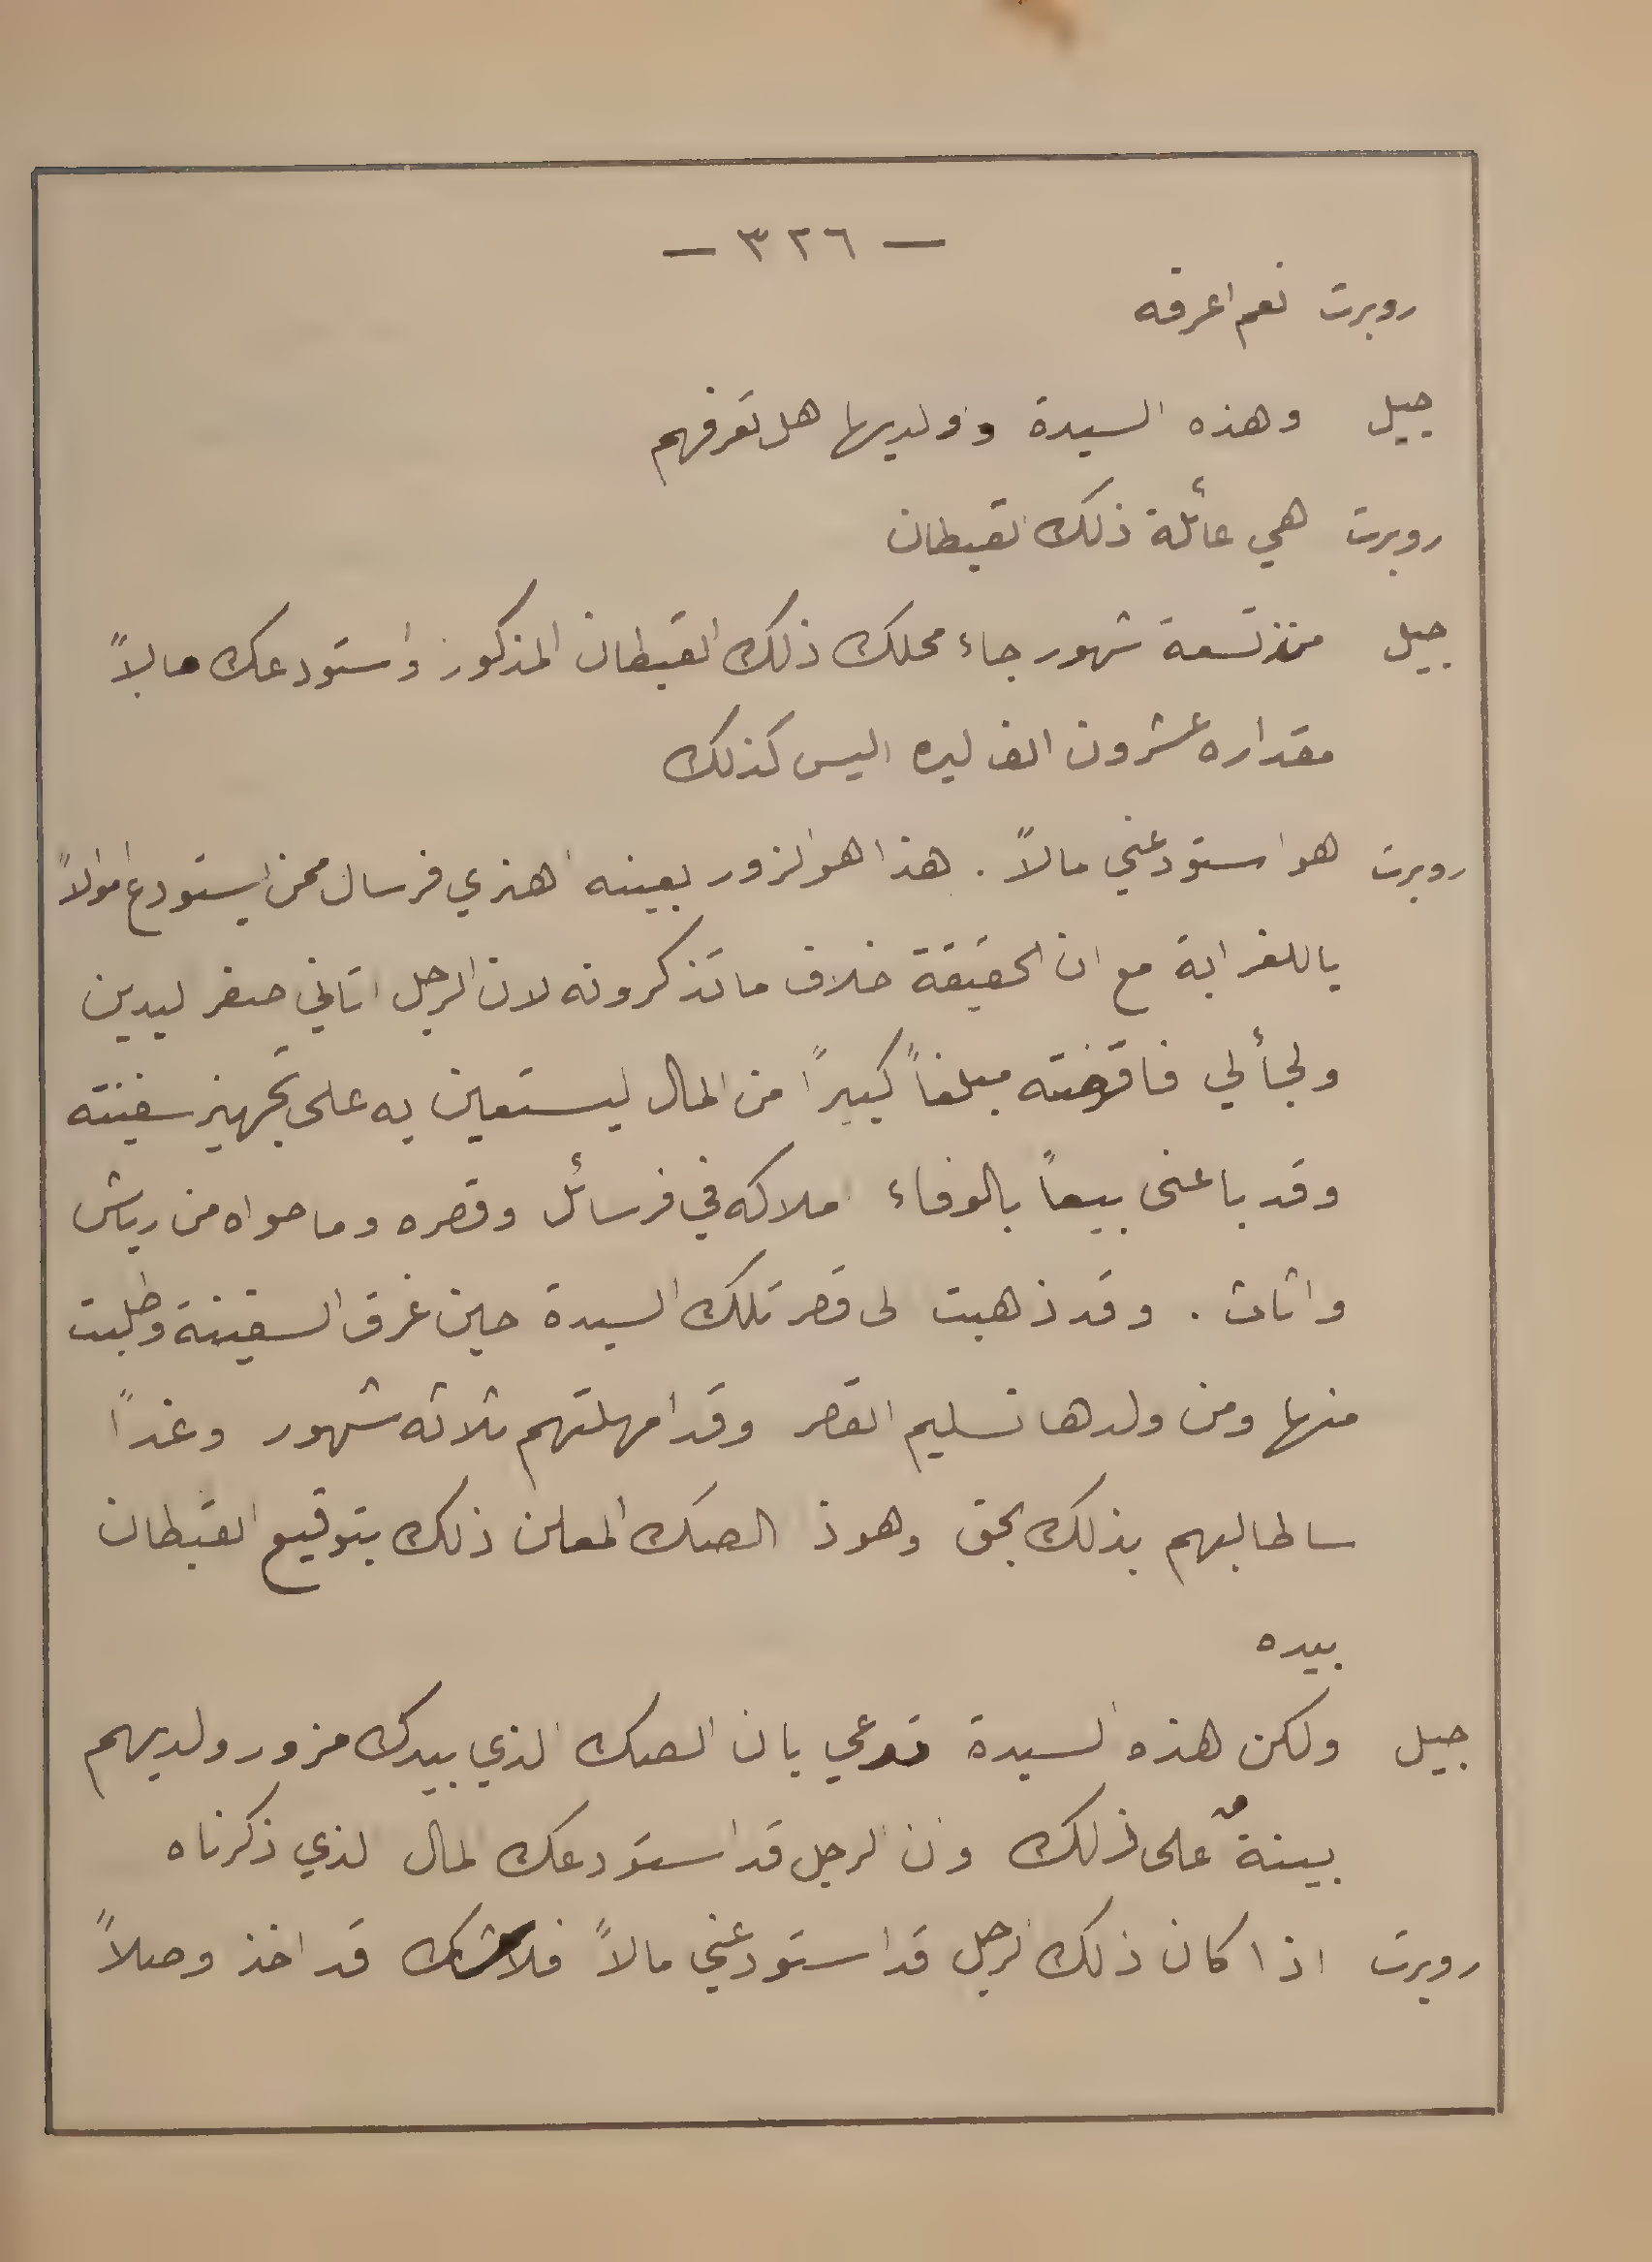 — ٣٢٦ —
روبرت نعم اعرفه
جيل وهذه السيدة وولديها هل تعرفهم
روبرت هي عائلة ذلك القبطان
جيل منذ تسعة شهور جاء محلك ذلك القبطان المذكور واستودعك مالاً
مقداره عشرون الف ليره اليس كذلك
روبرت هو استودعني مالاً . هذا هو الزور بعينه اهنري فرسال ممن يستودع اموالاً
ياللغرابة مع ان الحقيقة خلاف ما تذكرونه لان الرجل اتاني صفر ليدين
ولجأ لي فاقرضته مبلغاً كبيراً من المال ليستعين به على تجهيز سفينته
وقد باعنى بيعاً بالوفاء املاكه في فرسائل وقصره وما حواه من رياش
واثاث . وقد ذهبت لى قصر تلك السيدة حين غرق السفينة وطلبت
منها ومن ولدها تسليم القصر وقد امهلتهم ثلاثه شهور وغداً
ساطالبهم بذلك بحق وهوذ الصك المعلن ذلك بتوقيع القبطان
بيده
جيل ولكن هذه السيدة تدعي بان الصك الذي بيدك مزور ولديهم
بينةٌ على ذلك وان الرجل قد استودعك المال لذي ذكرناه
روبرت اذا كان ذلك الرجل قد استودعني مالاً فلاشك قد اخذ وصلاً